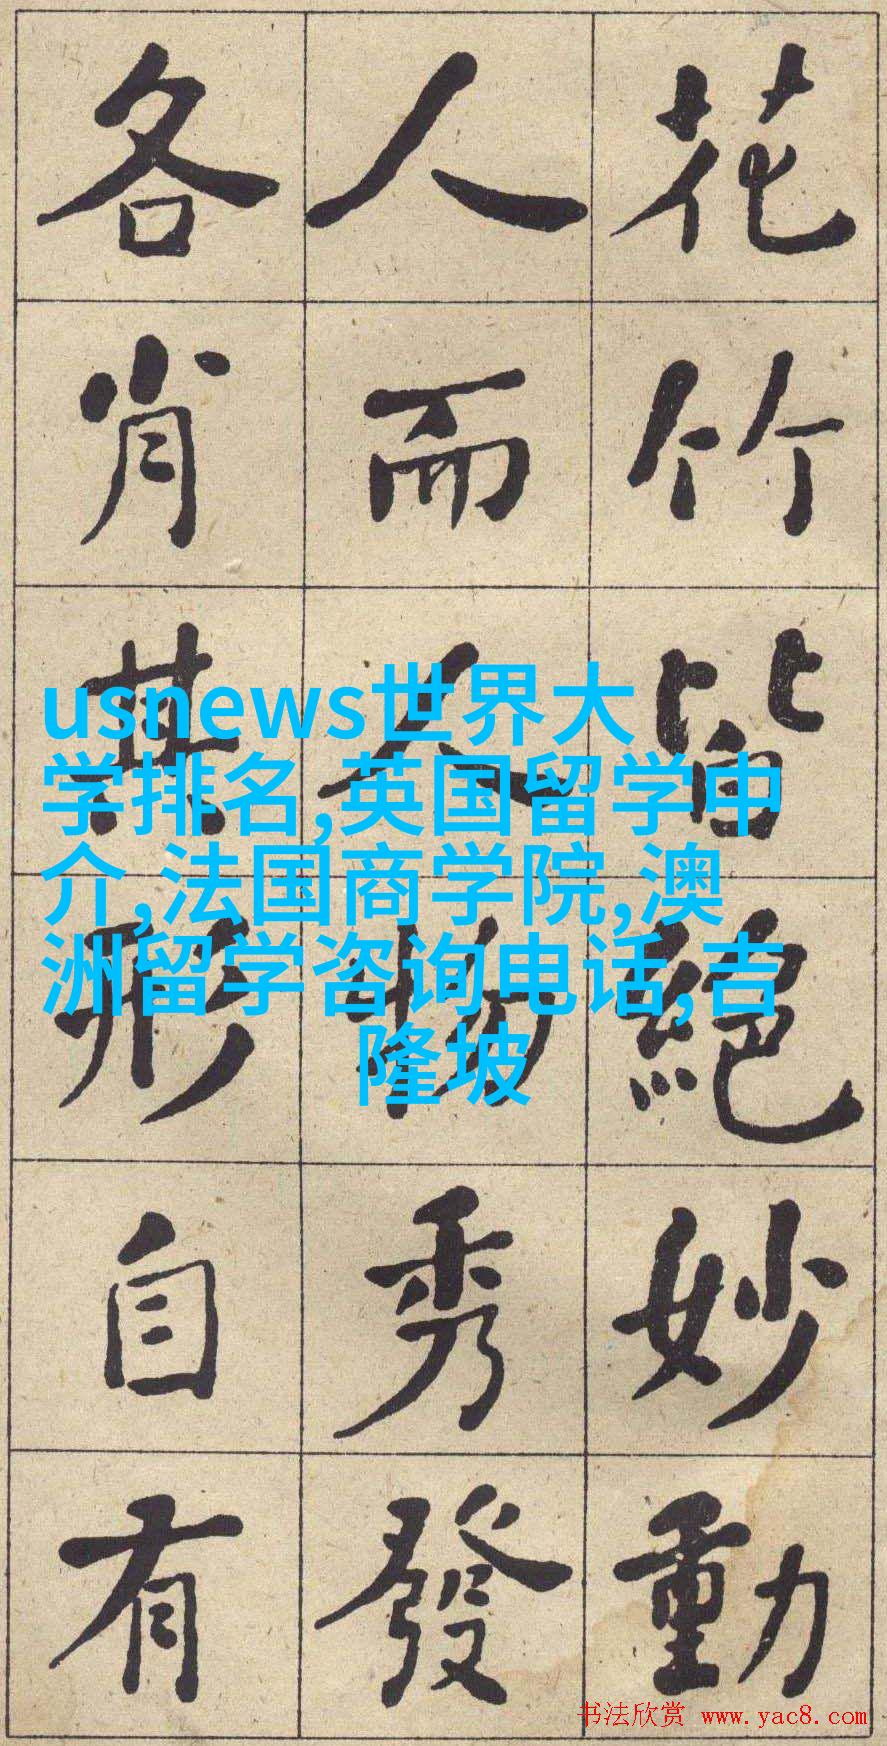 花竹皆絕妙動
人而人物秀發
各肖其形自有
usnews世界大
学排名,英国留学中
介,法国商学院,澳
洲留学咨询电话,吉
隆坡
书法欣赏 www.yac8.com